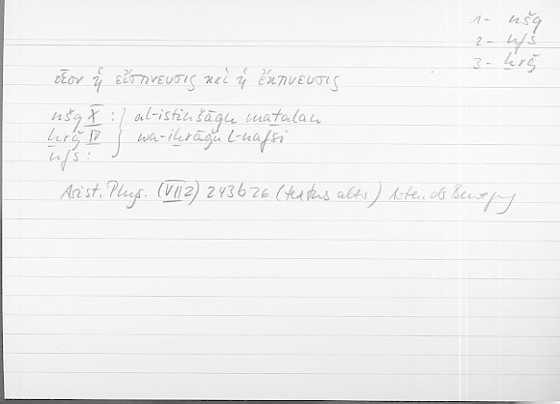 1 - nšq
2 - nfs
3 - ḫrǧ
οἷον ἡ εἴσπνευσις καὶ ἡ ἔκπνευσις
nšq X : } al-istinšāqu maṯalan
ḫrǧ IV } wa-iḫrāǧu l-nafsi
nfs :
Arist. Phys. (VII 2) 243b26 (textus alter) Arten der Bewegung